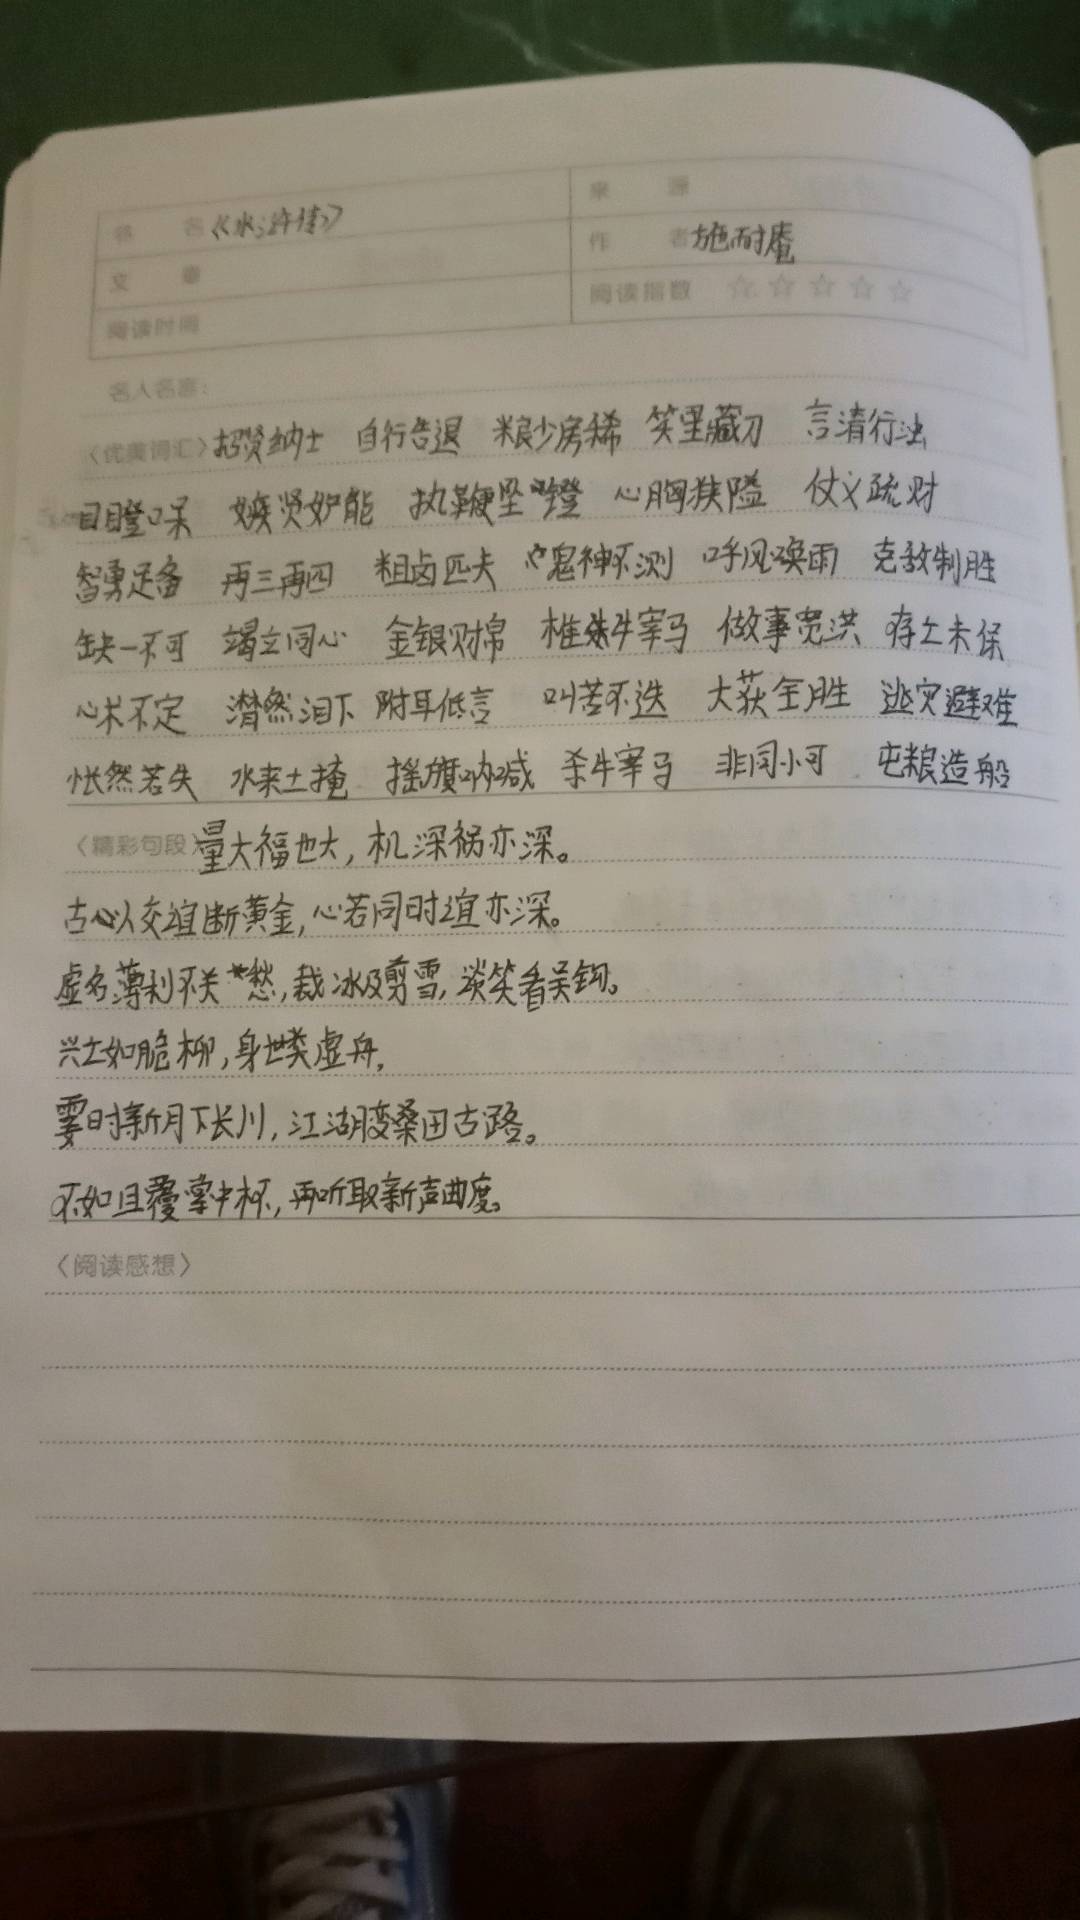 书 名 《水浒传》 来 源
文 章 作 者 施耐庵
阅读时间 阅读指数 ☆ ☆ ☆ ☆ ☆
名人名言:
〈优美词汇〉招贤纳士 自行告退 粮少房稀 笑里藏刀 言清行浊
目瞪口呆 嫉贤妒能 执鞭坠镫 心胸狭隘 仗义疏财
智勇足备 再三再四 粗卤匹夫 鬼神不测 呼风唤雨 克敌制胜
缺一不可 竭立同心 金银财帛 椎牛宰马 做事宽洪 存亡未保
心术不定 潸然泪下 附耳低言 叫苦不迭 大获全胜 逃灾避难
怅然若失 水来土掩 摇旗呐喊 杀牛宰马 非同小可 屯粮造船
〈精彩句段〉量大福也大，机深祸亦深。
古人交谊断黄金，心若同时谊亦深。
虚名薄利不关愁，裁冰及剪雪，谈笑看吴钩。
兴亡如脆柳，身世类虚舟，
霎时新月下长川，江湖变桑田古路。
不如且覆掌中杯，再听取新声曲度。
〈阅读感想〉